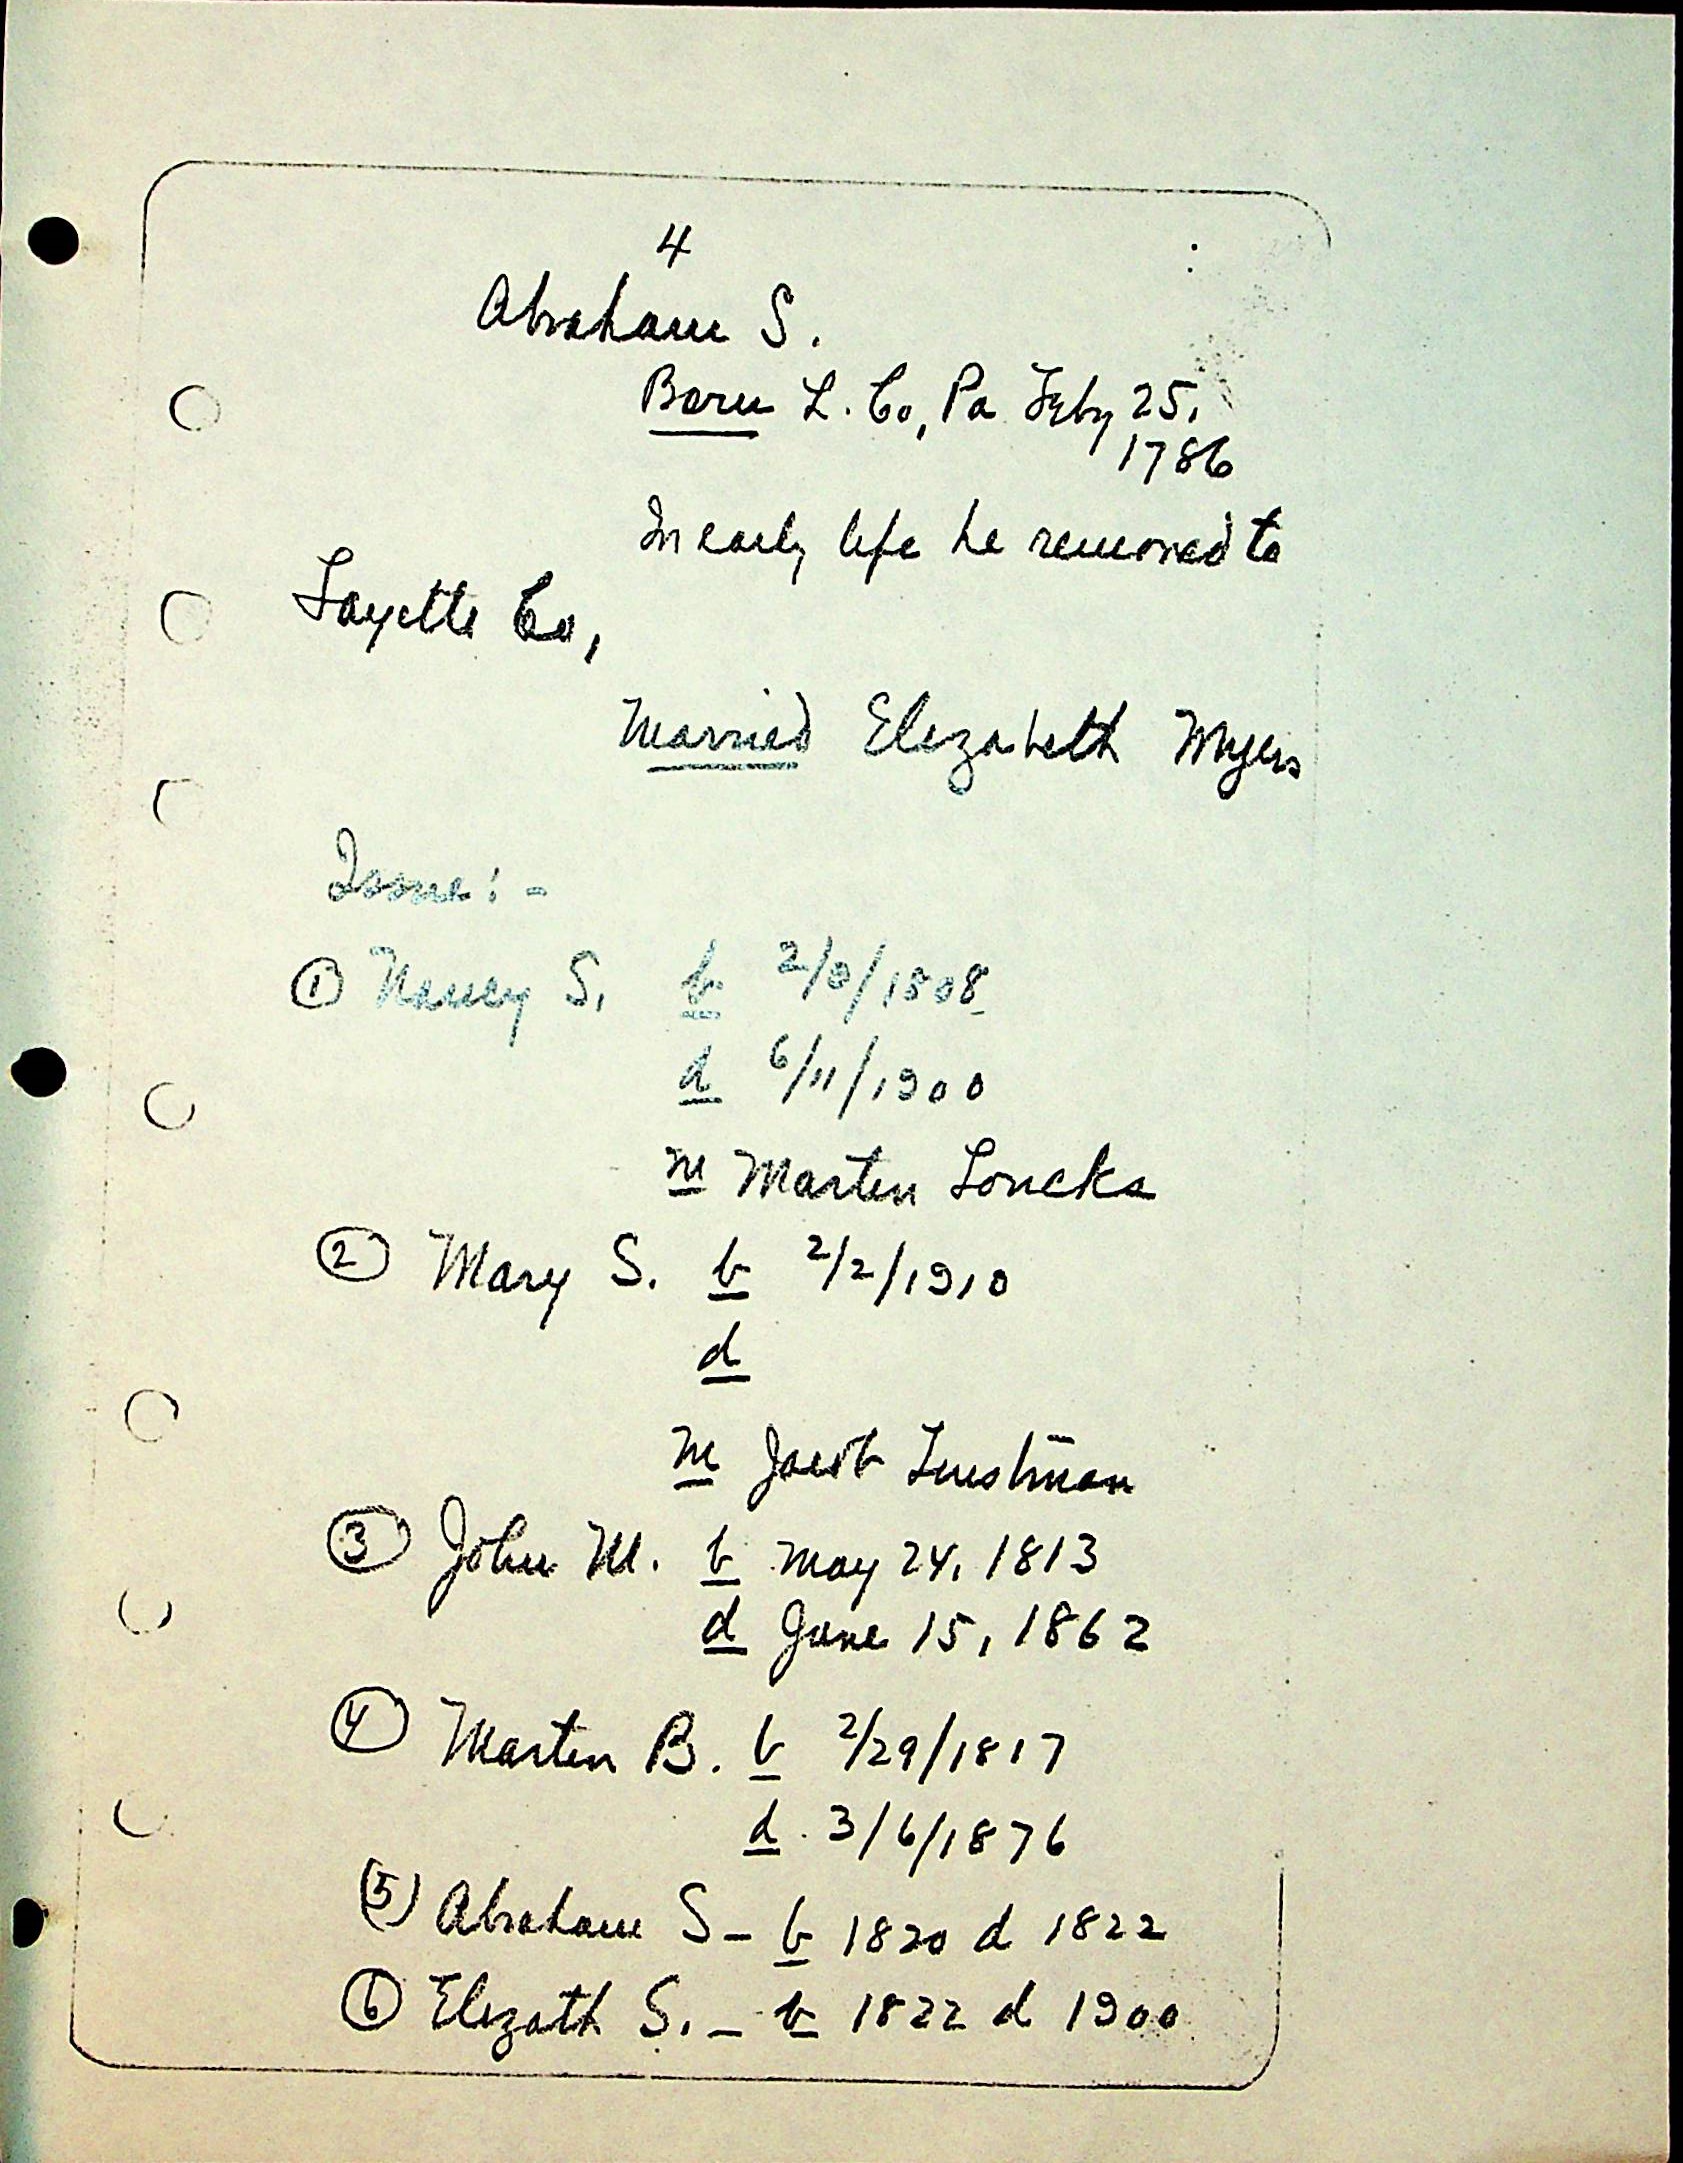 4
Abraham S.
Born L. Co, Pa Feby 25,
1786
In early life he removed to
Fayette Co,
Married Elizabeth Myers
Issue: -
① Nancy S. b 2/8/1808
d 6/11/1900
m Martin Loucks
② Mary S. b 2/2/1910
d
m Jacob
③ John M. b May 24, 1813
d June 15, 1862
④ Martin B. b 2/29/1817
d 3/6/1876
⑤ Abraham S - b 1820 d 1822
⑥ Elizath S. - b 1822 d 1900